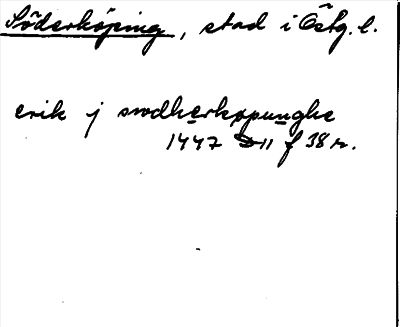 Söderköping, stad i Östg. l.
erik j swdherkopunghe
1447 D 11 f 38 r.